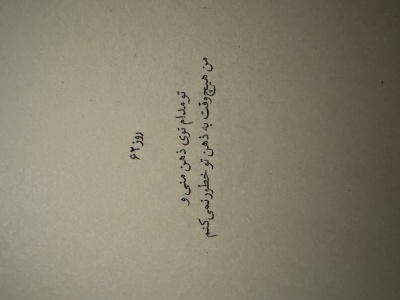 روز ۶۲
تو مدام توی ذهن منی و
من هیچ‌وقت به ذهن تو خطور نمی‌کنم